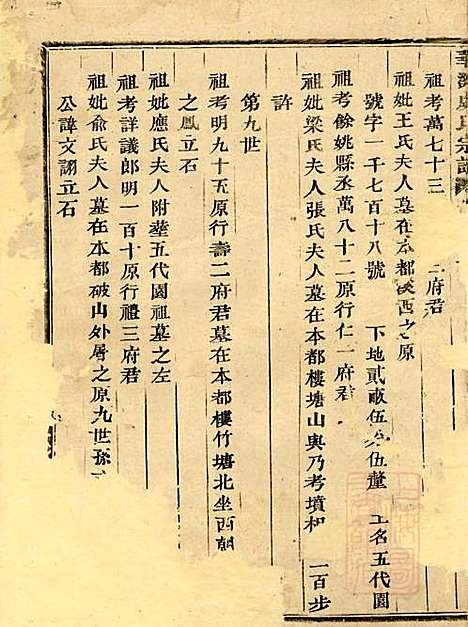 氏宗譜
祖考萬七十三 府君
祖妣王氏夫人墓在本都 西之原
號字一千七百十八號 下地貳畝伍 伍釐 土名五代園
祖考餘姚縣丞萬八十二原行仁一府君
祖妣梁氏夫人張氏夫人墓在本都樓塘山與乃考墳相 一百步
許
第九世
祖考明九十五原行壽二府君墓在本都樓竹塘北坐西朝
之鳳立石
祖妣應氏夫人附葬五代園祖墓之左
祖考詳議郎明一百十原行禮三府君
祖妣俞氏夫人墓在本都破山外屠之原九世孫
公諱文詡立石